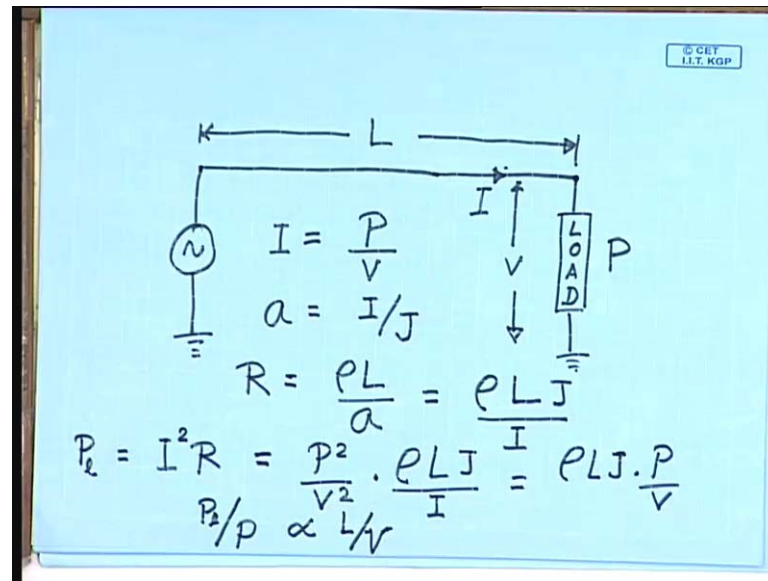 © CET
I.I.T. KGP
L
I
I = P/V
V
LOAD
P
a = I/J
R = ρL/a = ρLJ/I
Pℓ = I²R = P²/V² · ρLJ/I = ρLJ · P/V
Pℓ/P ∝ L/V